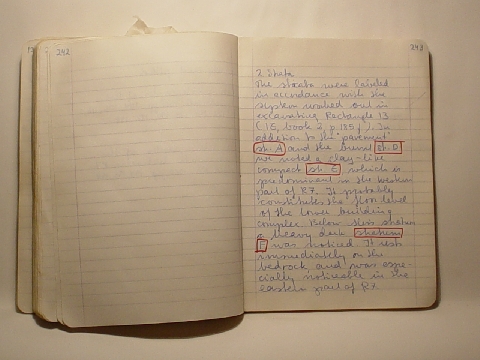 242
243
2. Strata
The strata were labeled
in accordance with the
system worked out in
excavating Rectangle 13
book 2, p. 185
addition to the "pavement"
str. A and the burnt str. D
we noted a clay-like
compact str. E, which is
predominant in the western
part of R7. It probably
constitutes the floor level
of the lower building
complex. Below this stratum
a heavy dark stratum
F was noticed. It rests
immediately on the
bedrock and was espe-
cially noticeable in the
eastern part of R7.